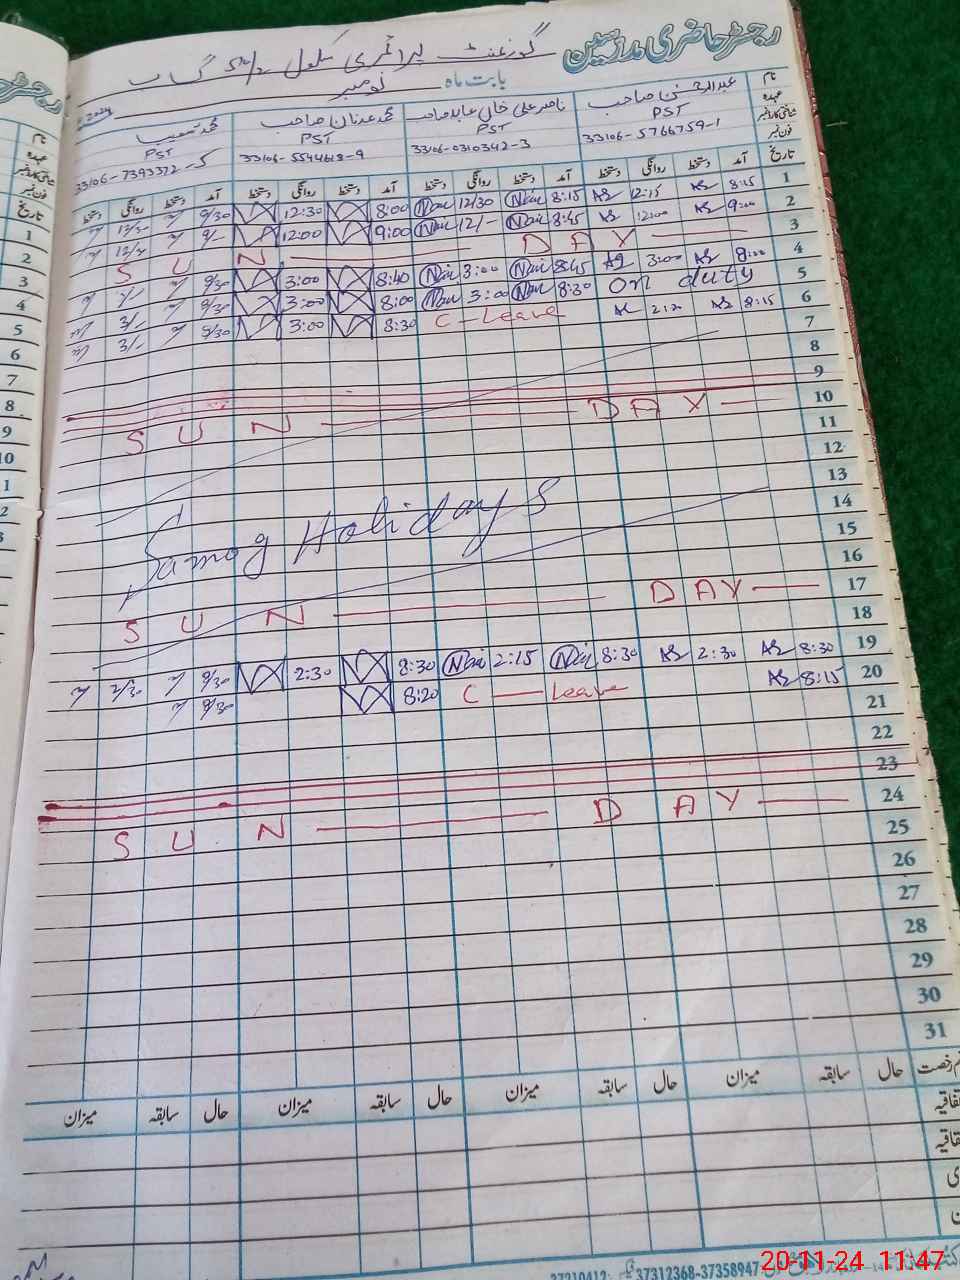 رجسٹر حاضری مدرسین
گورنمنٹ پرائمری سکول گ ب
بابت ماہ نومبر
نام عبدالرحمٰن صاحب ناصر علی خان عابد صاحب محمد عدنان صاحب محمد شعیب نام
عہدہ PST PST PST PST عہدہ
شناختی کارڈ نمبر 33106-5766759-1 33106-0310342-3 33106-5544613-9 33106-7393372- شناختی کارڈ نمبر
فون نمبر فون نمبر
تاریخ آمد دستخط روانگی دستخط آمد دستخط روانگی دستخط آمد دستخط روانگی دستخط آمد دستخط روانگی دستخط تاریخ
1 8:15 12:15 8:15 12/30 8:00 12:30 8/30 12/30
2 9:00 12:00 8:45 12/- 9:00 12:00 9/- 12/-
3 S U N D A Y
4 8:00 3:00 8:45 3:00 8:40 3:00 8/30
5 on duty 8:30 3:00 8:00 3:00 8/30 3/-
6 8:15 2:20 C-Leave 8:30 3:00 8/30 3/-
7
8
9
10 S U N D A Y
11
12
13
14
Samog Holidays
15
16
17 S U N D A Y
18
19 8:30 2:30 8:30 2:15 8:30 2:30 8/30 2/30
20 8:15 C Leave 8:20 8/30
21
22
23
24 S U N D A Y
25
26
27
28
29
30
31
حال سابقہ میزان حال سابقہ میزان حال سابقہ میزان حال سابقہ میزان
37312368-37358947
20-11-24 11:47